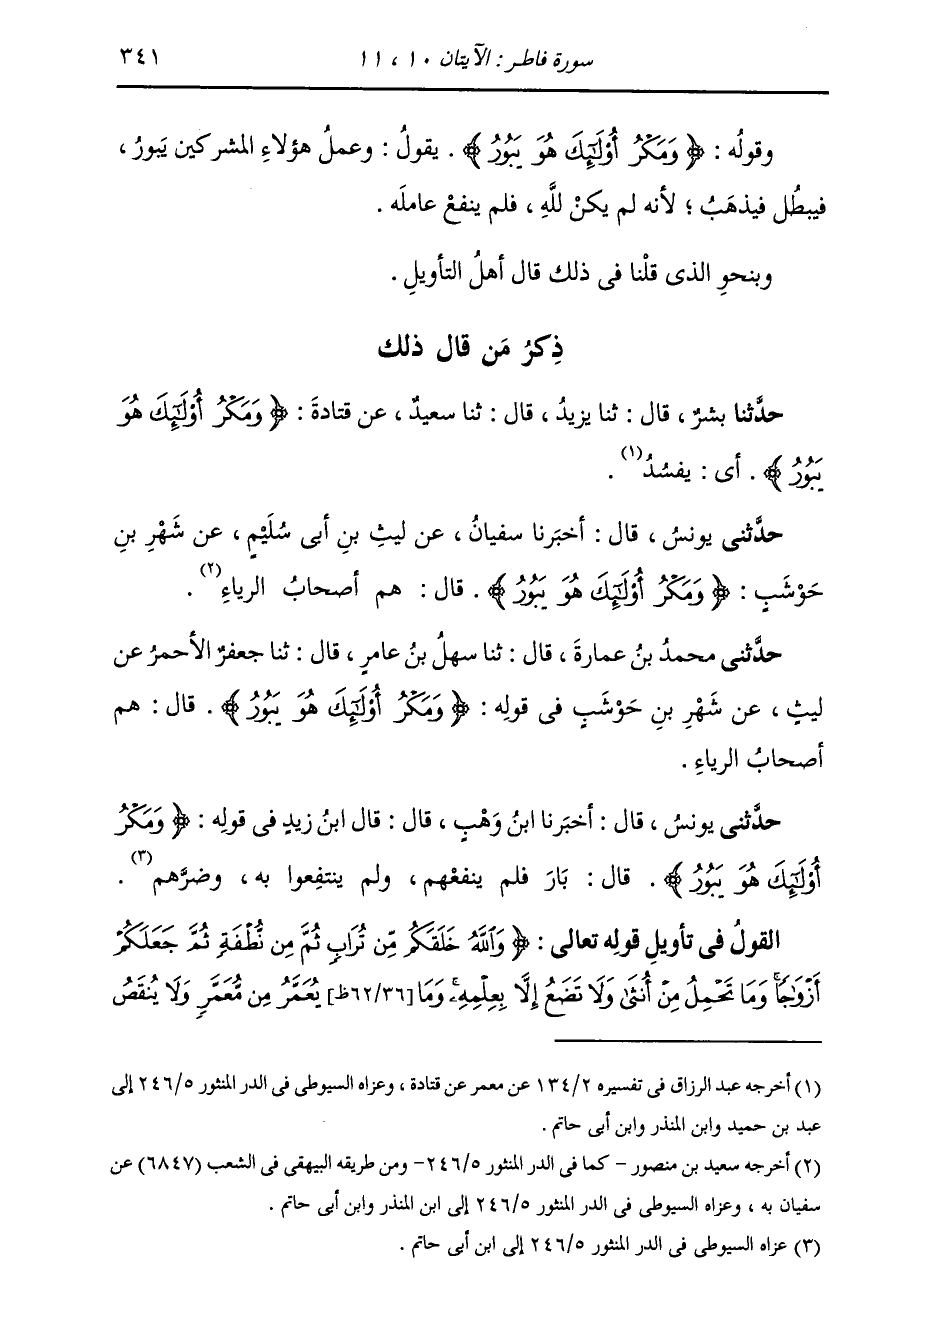 سورة فاطر : الآيتان ١٠ ، ١١ ٣٤١
وقولُه : ﴿ وَمَكْرُ أُوْلَٰٓئِكَ هُوَ يَبُورُ ﴾ . يقولُ : وعملُ هؤلاءِ المشركين يَبورُ ،
فيبطُل فيذهَبُ ؛ لأنه لم يكنْ للَّهِ ، فلم ينفعْ عاملَه .
وبنحوِ الذى قلْنا فى ذلك قال أهلُ التأويلِ .
ذِكرُ مَن قال ذلك
حدَّثنا بشرٌ ، قال : ثنا يزيدُ ، قال : ثنا سعيدٌ ، عن قتادةَ : ﴿ وَمَكْرُ أُوْلَٰٓئِكَ هُوَ
يَبُورُ ﴾ . أى : يفسُدُ(١) .
حدَّثنى يونسُ ، قال : أخبَرنا سفيانُ ، عن ليثِ بنِ أبى سُلَيْمٍ ، عن شَهْرِ بنِ
حَوْشَبٍ : ﴿ وَمَكْرُ أُوْلَٰٓئِكَ هُوَ يَبُورُ ﴾ . قال : هم أصحابُ الرياءِ(٢) .
حدَّثنى محمدُ بنُ عمارةَ ، قال : ثنا سهلُ بنُ عامرٍ ، قال : ثنا جعفرٌ الأحمرُ عن
ليثٍ ، عن شَهْرِ بنِ حَوْشَبٍ فى قولِه : ﴿ وَمَكْرُ أُوْلَٰٓئِكَ هُوَ يَبُورُ ﴾ . قال : هم
أصحابُ الرياءِ .
حدَّثنى يونسُ ، قال : أخبَرنا ابنُ وَهْبٍ ، قال : قال ابنُ زيدٍ فى قولِه : ﴿ وَمَكْرُ
أُوْلَٰٓئِكَ هُوَ يَبُورُ ﴾ . قال : بَارَ فلم ينفعْهم ، ولم ينتفِعوا به ، وضرَّهم(٣) .
القولُ فى تأويلِ قولِه تعالى : ﴿ وَٱللَّهُ خَلَقَكُم مِّن تُرَابٍ ثُمَّ مِن نُّطْفَةٍ ثُمَّ جَعَلَكُمْ
أَزْوَٰجًاۚ وَمَا تَحْمِلُ مِنْ أُنثَىٰ وَلَا تَضَعُ إِلَّا بِعِلْمِهِۦۚ وَمَا [٦٢/٣٦ظ] يُعَمَّرُ مِن مُّعَمَّرٍ وَلَا يُنقَصُ
(١) أخرجه عبد الرزاق فى تفسيره ١٣٤/٢ عن معمر عن قتادة ، وعزاه السيوطى فى الدر المنثور ٢٤٦/٥ إلى
عبد بن حميد وابن المنذر وابن أبى حاتم .
(٢) أخرجه سعيد بن منصور - كما فى الدر المنثور ٢٤٦/٥- ومن طريقه البيهقى فى الشعب (٦٨٤٧) عن
سفيان به ، وعزاه السيوطى فى الدر المنثور ٢٤٦/٥ إلى ابن المنذر وابن أبى حاتم .
(٣) عزاه السيوطى فى الدر المنثور ٢٤٦/٥ إلى ابن أبى حاتم .